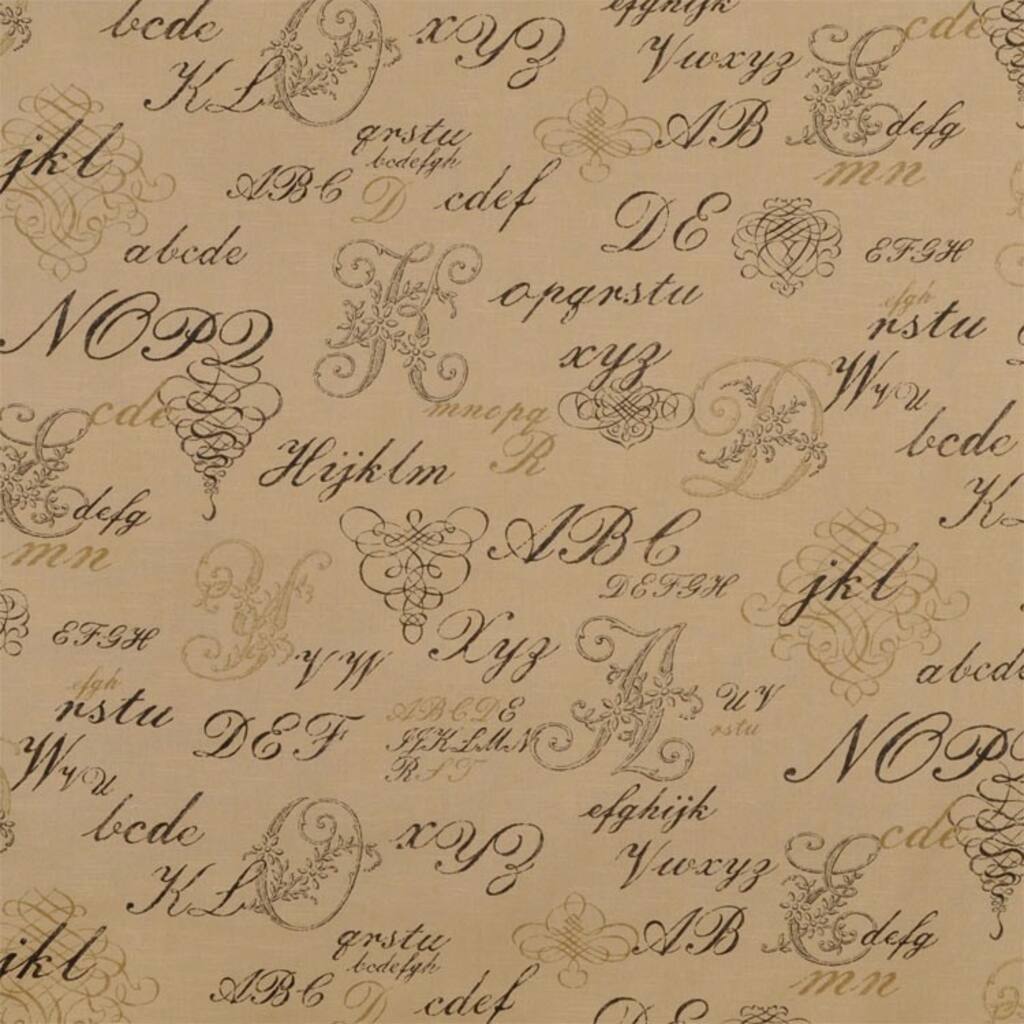 efghijk
bcde
xyz
cde
Vwxyz
KL
O
E
qrstu
AB
defg
bcdefgh
jkl
mn
ABC
D
cdef
DE
abcde
EFGH
K
opqrstu
efgh
rstu
NOPQ
xyz
WYU
cde
mnopq
D
bcde
E
R
Hijklm
KL
defg
ABC
mn
jkl
DEFGH
EFGH
Xyz
YW
A
abcde
efgh
UV
rstu
rstu
DEF
ABCDE
IJKLMN
RST
NOP
WYU
bcde
O
xyz
efghijk
cde
Vwxyz
KL
E
qrstu
AB
defg
bcdefgh
jkl
mn
ABC
D
cdef
DE